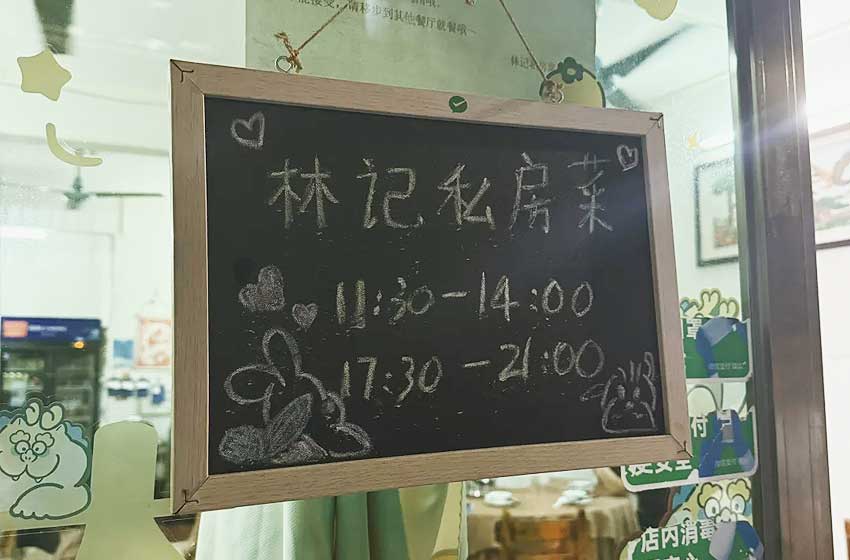 请移步到其他餐厅就餐哦~
林记私房菜
11:30-14:00
17:30-21:00
店内消毒